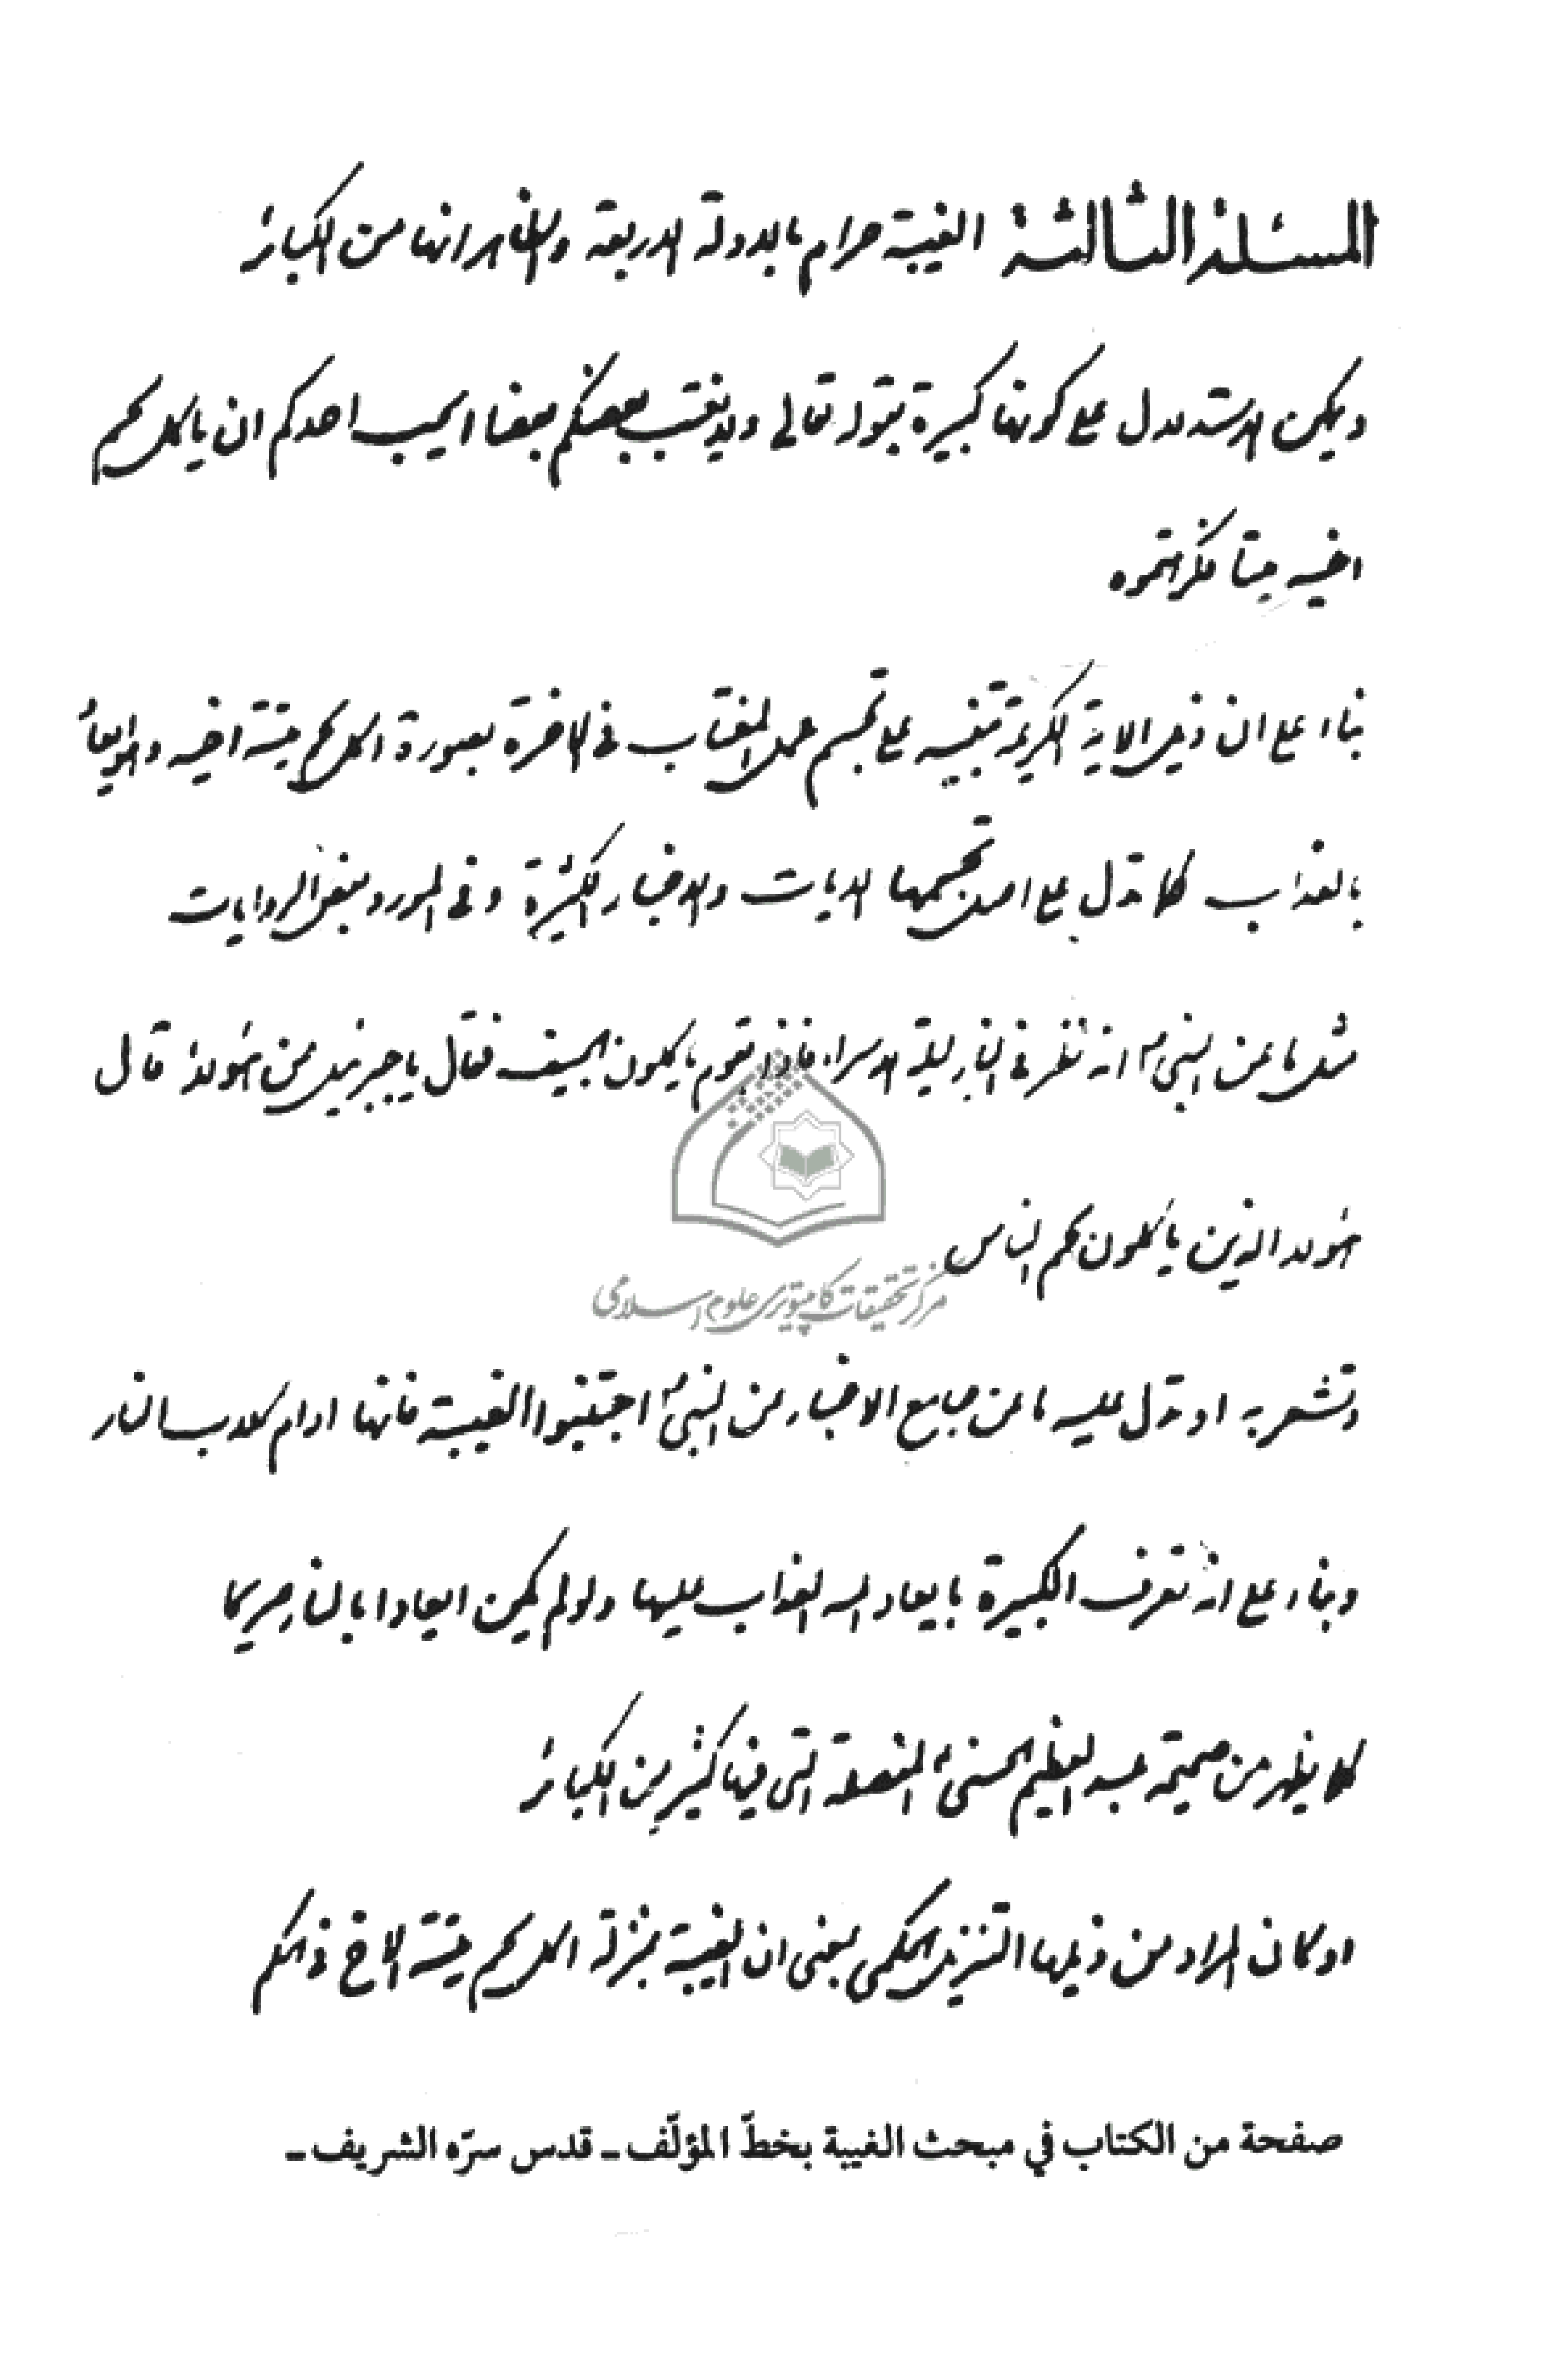 المسئلة الثالثة الغيبة حرام بالادلة الاربعة والظاهر انها من الكبائر
ويمكن الاستدلال على كونها كبيرة بقوله تعالى ولا يغتب بعضكم بعضا ايحب احدكم ان ياكل لحم
اخيه ميتا فكرهتموه
بناء على ان ذيل الاية الكريمة تنبيه على تجسم عمل المغتاب فى الاخرة بصورة اكل لحم ميتة اخيه وهو ايعاد
بالعذاب كما تدل على اصل تجسمها الايات والاخبار الكثيرة وفى المورد بعض الروايات
مثل ما عن النبى ص انه نظر فى النار ليلة الاسراء فاذا بقوم ياكلون الجيف فقال يا جبرئيل من هؤلاء قال
هؤلاء الذين ياكلون لحم الناس
مركز تحقيقات كامپيوترى علوم اسلامى
وتشعر به او تدل عليه ما عن جامع الاخبار عن النبى ص اجتنبوا الغيبة فانها ادام كلاب النار
وبناء على انه تعرف الكبيرة بايعاد الله العذاب عليها ولو لم يكن ايعادا بالنار صريحا
كما يظهر من صحيحة عبد العظيم الحسنى المفصلة التى فيها كثير من الكبائر
او كان المراد من ذيلها التنزيل الحكمى بمعنى ان الغيبة بمنزلة اكل لحم ميتة الاخ فى الحكم
صفحة من الكتاب في مبحث الغيبة بخطّ المؤلّف ـ قدس سرّه الشريف ـ